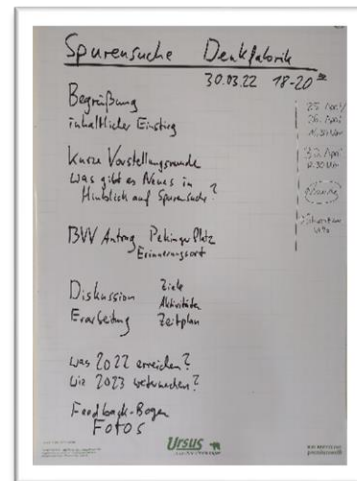 Spurensuche Denkfabrik
30.03.22 18-20
Begrüßung
inhaltlicher Einstieg
Kurze Vorstellungsrunde
Was gibt es Neues in
Hinblick auf Spurensuche?
BVV Antrag Pekinger Platz
Erinnerungsort
Diskussion Ziele
Aktivitäten
Erarbeitung Zeitplan
Was 2022 erreichen?
Wie 2023 weitermachen?
Feedback-Bogen
FOTOS
25. April
26. April
Ursus